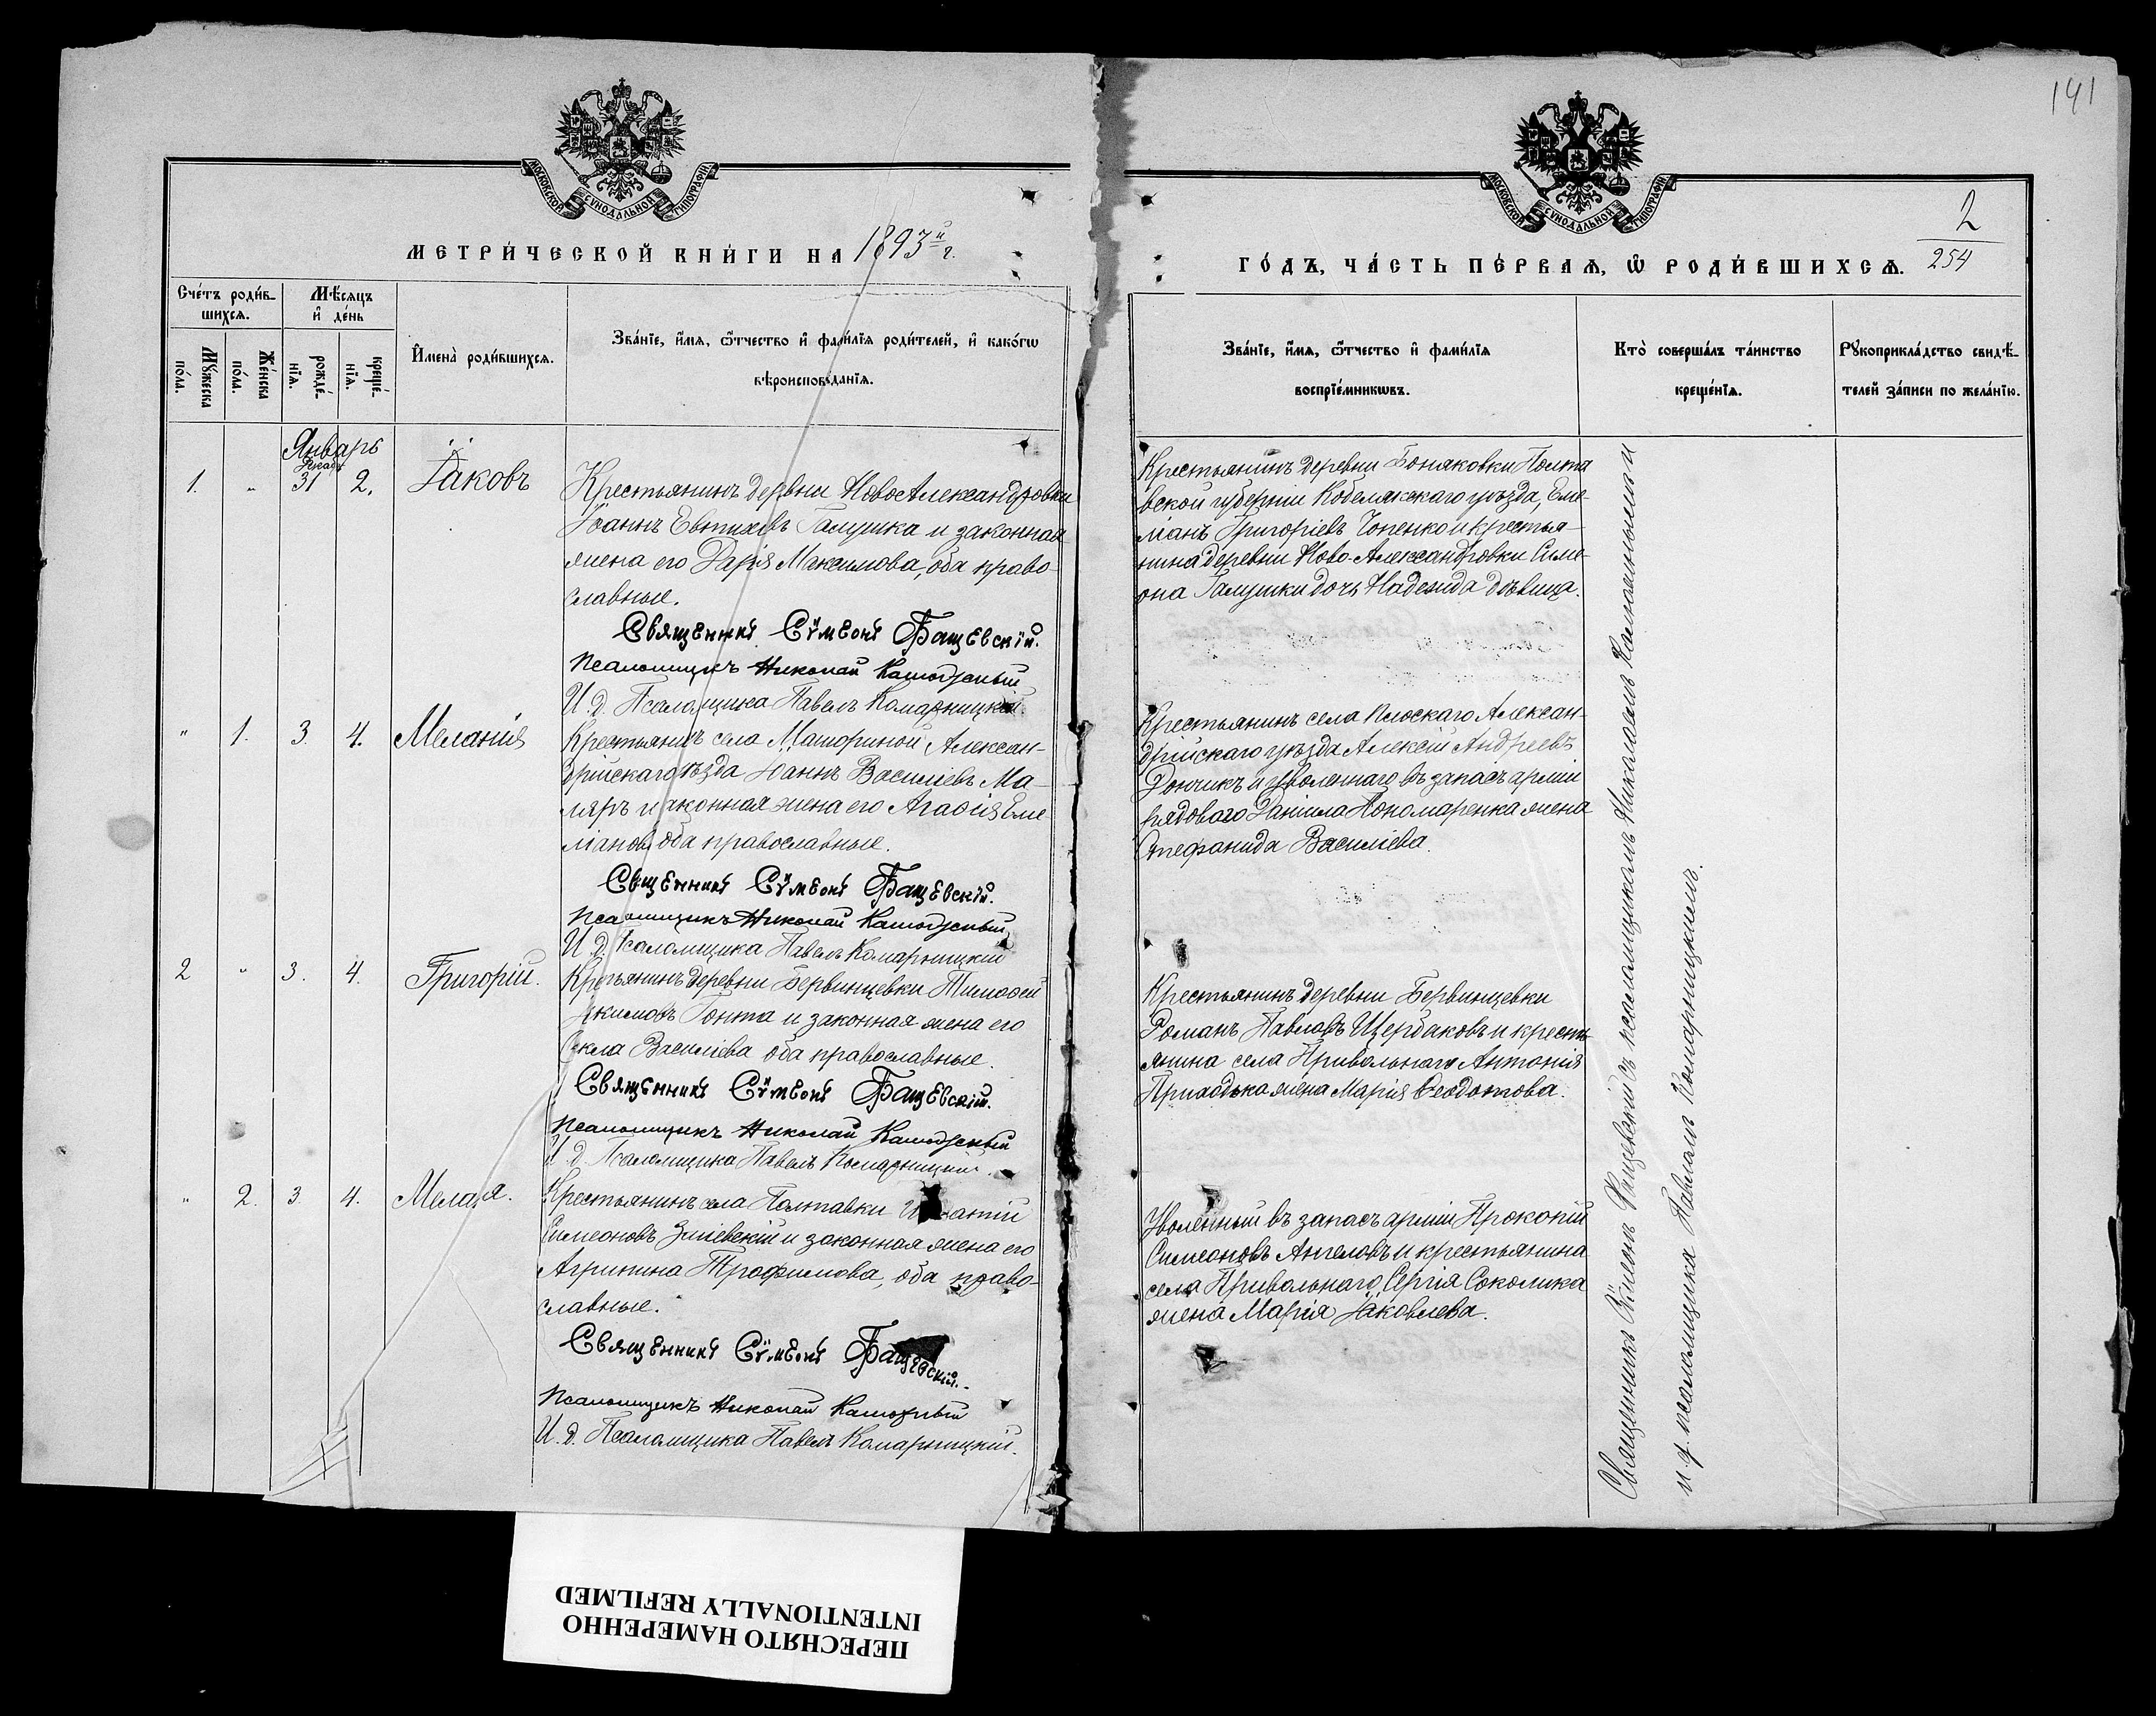 141
МОСКОВСКОЙ СѴНОДАЛЬНОЙ ТИПОГРАФІИ.
МОСКОВСКОЙ СѴНОДАЛЬНОЙ ТИПОГРАФІИ.
МЕТРИ́ЧЕСКОЙ КНИ́ГИ НА 1893й г.
ГО́ДЪ, ЧА́СТЬ ПЕ́РВАѦ, Ѡ҆ РОДИ́ВШИХСѦ.
2
254
Сче́тъ роди́в-
шихсѧ.
Мѣ́сѧцъ
и҆ де́нь
Мꙋ́жеска
по́ла.
Же́нска
по́ла.
рожде́-
нїѧ.
креще́-
нїѧ.
И҆мена̀ роди́вшихсѧ.
Зва́нїе, и҆́мѧ, ѻ҆́тчество и҆ фами́лїѧ роди́телей, и҆ како́гѡ
вѣроисповѣ́данїѧ.
Зва́нїе, и҆́мѧ, ѻ҆́тчество и҆ фами́лїѧ
воспрїе́мникѡвъ.
Кто̀ соверша́лъ та́инство
креще́нїѧ.
Рꙋкоприкла́дство свидѣ́-
телей за́писи по жела́нїю.
Январь
Декаб
1. „ 31 2. Іаковъ
Крестьянинъ деревни НовоАлександровки
Іоаннъ Евтихіевъ Галушка и законная
жена его Дарія Максимова, оба право-
славные.
Священникъ Сѵмеонъ Бащевскій.
Псаломщикъ Николай
И. д. Псаломщика Павелъ Комарницкій.
Крестьянинъ деревни Боняковки Полта
вской губерніи Кобелякскаго уѣзда, Еме-
ліанъ Григоріевъ Чопенко и крестья-
нина деревни Ново-Александровки Симе-
она Галушки дочь Надежда дѣвица.
„ 1. 3. 4. Меланія
Крестьянинъ села Машориной Алексан-
дрійскаго уѣзда Іоаннъ Василіевъ Ма-
ляръ и законная жена его Агафія Еме
ліанова оба православные.
Священникъ Сѵмеонъ Бащевскій.
Псаломщикъ Николай
И. д. Псаломщика Павелъ Комарницкій
Крестьянинъ села Плоскаго Алексан-
дрійскаго уѣзда Алексій Андреевъ
Дончикъ и уволеннаго въ запасъ арміи
рядового Даніила Пономаренка жена
Стефанида Василіева.
2 „ 3. 4. Григорій.
Крестьянинъ деревни Бервинцевки Тимофей
Акимовъ Гонта и законная жена его
Ѳекла Василіева оба православные.
Священникъ Сѵмеонъ Бащевскій.
Псаломщикъ Николай
И. д. Псаломщика Павелъ Комарницкій.
Крестьянинъ деревни Бервинцевки
Романъ Павловъ Щербаковъ и кресть
янина села Привольнаго Антонія
Приходька жена Марія Ѳеодотова.
„ 2. 3. 4.
Крестьянинъ села Полтавки
Симеоновъ Зміевскій и законная жена его
Агрипина Трофимова, оба право-
славные.
Священникъ Сѵмеонъ Бащевскій.
Псаломщикъ Николай
И. д. Псаломщика Павелъ Комарницкій.
Уволенный въ запасъ арміи Прокопій
Симеоновъ Ангеловъ и крестьянина
села Привольнаго, Сергія Соколика
жена Марія Іаковлева.
Священникъ Сѵмеонъ Бащевскій съ псаломщикомъ Николаемъ и
и. д. псаломщика Павломъ Комарницкимъ.
ПЕРЕСНЯТО НАМЕРЕННО
INTENTIONALLY REFILMED